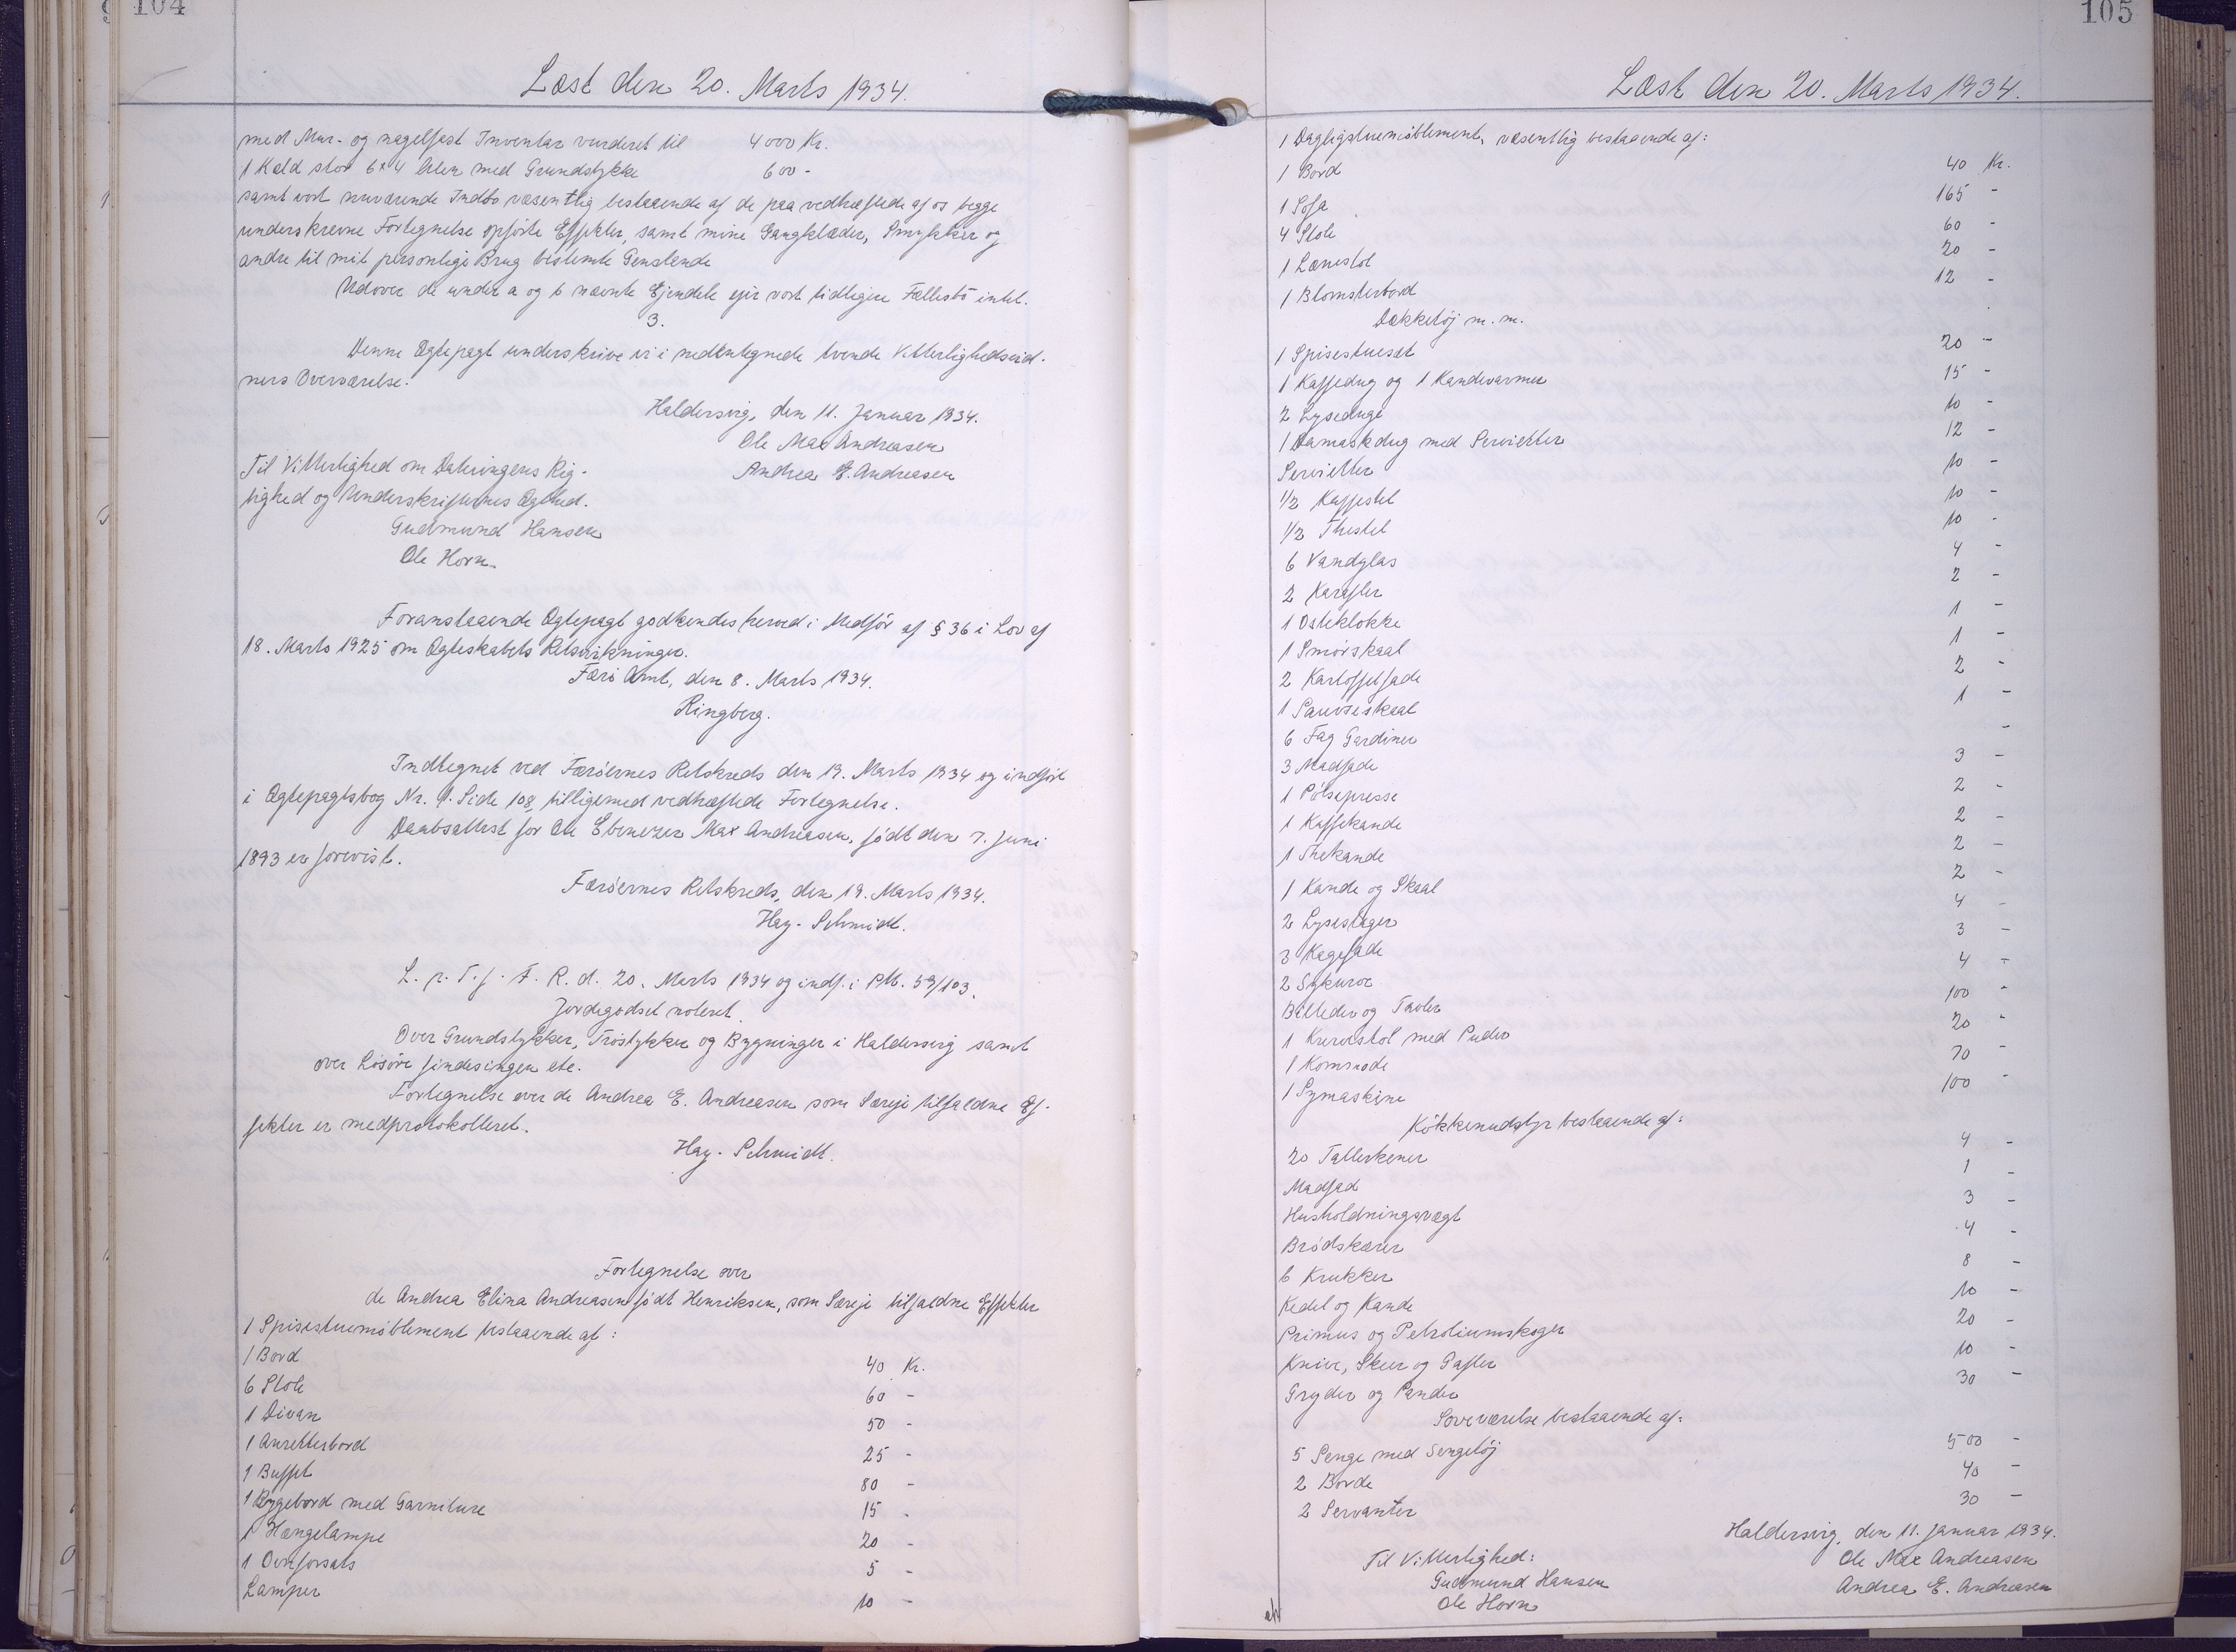 104
Læst den 20. Marts 1934.
med Mur- og nagelfast Inventar vurderet til 4000 Kr.
1 Kæld stor 6×4 Alen med Grundstykke 600 -
samt vort nuværende Indbo væsentlig bestaaende af de paa vedhæftede af os begge
underskrevne Fortegnelse opførte Effekter, samt mine Gangklæder, Smykker og
andre til mit personlige Brug bestemte Genstande
Udover de under a og b nævnte Ejendele ejer vort tidligere Fællesbo intet.
3.
Denne Ægtepagt underskrive vi i nedentegnede tvende Vitterlighedsvid-
ners Overværelse.
Haldersvig, den 11. Januar 1934.
Ole Max Andreasen
Til Vitterlighed om Dateringens Rig- Andrea E. Andreasen
tighed og Underskrifternes Ægthed.
Gudmund Hansen
Ole Horn.
Foranstaaende Ægtepagt godkendes herved i Medfør af § 36 i Lov af
18. Marts 1925 om Ægteskabets Retsvirkninger.
Færø Amt, den 8. Marts 1934.
Ringberg.
Indtegnet ved Færøernes Retskreds den 19. Marts 1934 og indført
i Ægtepagtsbog Nr. 1. Side 108, tilligemed vedhæftede Fortegnelse.
Daabsattest for Ole Ebenezer Max Andreasen, født den 7. Juni
1893 er forevist.
Færøernes Retskreds, den 19. Marts 1934.
Hay-Schmidt.
L. p. T. f. F. R. d. 20. Marts 1934 og indf. i PM. 59/103.
Jordegodset noteret.
Over Grundstykker, Trøstykker og Bygninger i Haldersvig samt
over Løsøre findes ingen etc.
Fortegnelse over de Andrea E. Andreasen som Særeje tilfaldne Ef-
fekter er medprotokolleret.
Hay-Schmidt.
Fortegnelse over
de Andrea Elina Andreasen født Henriksen, som Særeje tilfaldne Effekter
1 Spisestuemøblement bestaaende af:
1 Bord 40 Kr.
6 Stole 60 -
1 Divan 50 -
1 Anretterbord 25 -
1 Buffet 80 -
1 Rygebord med Garniture 15 -
1 Hængelampe 20 -
1 Ovnforsats 5 -
Lamper 10 -
105
Læst den 20. Marts 1934.
1 Dagligstuemøblement, væsentlig bestaaende af:
1 Bord 40 Kr.
1 Sofa 165 -
4 Stole 60 -
1 Lænestol 20 -
1 Blomsterbord 12 -
Dækketøj m.m.
1 Spisestuesæt 20 -
1 Kaffedug og 1 Kandevarmer 15 -
2 Lyseduge 10 -
1 Damaskdug med Servietter 12 -
Servietter 10 -
1/2 Kaffestel 10 -
1/2 Thestel 10 -
6 Vandglas 4 -
2 Karafler 2 -
1 Osteklokke 1 -
1 Smørskaal 1 -
2 Kartoffelfade 2 -
1 Sauvseskaal 1 -
6 Fag Gardiner -
3 Madfade 3 -
1 Pølsepresse 2 -
1 Kaffekande 2 -
1 Thekande 2 -
1 Kande og Skaal 2 -
2 Lysestager 4 -
3 Kagefade 3 -
2 Sykurve 4 -
Billeder og Tavler 100 -
1 Kurvestol med Puder 20 -
1 Kommode 70 -
1 Symaskine 100 -
Køkkenudstyr bestaaende af:
20 Tallerkener 4 -
Madfad 1 -
Husholdningsvægt 3 -
Brødskærer 4 -
6 Krukker 8 -
Kedel og Kande 10 -
Primus og Petroliumskoger 20 -
Knive, Skeer og Gafler 10 -
Gryder og Pander 30 -
Soveværelse bestaaende af:
5 Senge med Sengetøj 500 -
2 Borde 40 -
2 Servanter 30 -
Haldersvig, den 11. Januar 1934.
Til Vitterlighed: Ole Max Andreasen
Gudmund Hansen Andrea E. Andreasen
Ole Horn